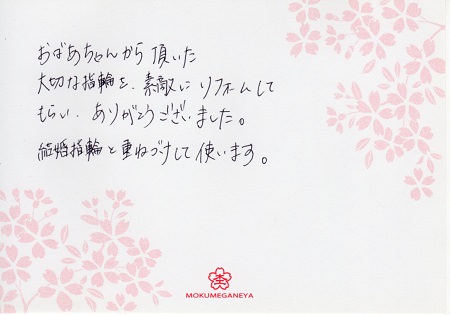 おばあちゃんから頂いた
大切な指輪を、素敵にリフォームして
もらい、ありがとうございました。
結婚指輪と重ねづけして使います。
MOKUMEGANEYA